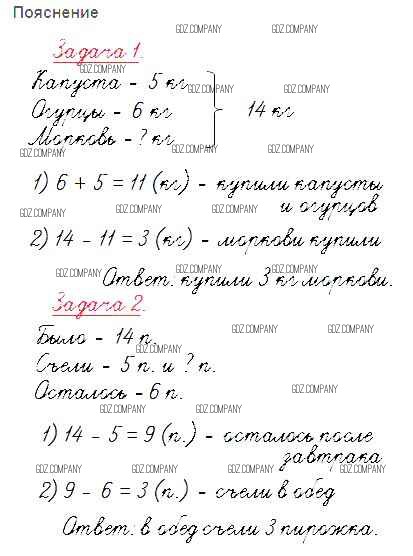 Пояснение
GDZ.COMPANY
Задача 1.
GDZ.COMPANY
Капуста - 5 кг
GDZ.COMPANY GDZ.COMPANY
Огурцы - 6 кг 14 кг
Морковь - ? кг
GDZ.COMPANY GDZ.COMPANY GDZ.COMPANY
1) 6 + 5 = 11 (кг) - купили капусты
и огурцов
GDZ.COMPANY GDZ.COMPANY GDZ.COMPANY
2) 14 - 11 = 3 (кг) - моркови купили
GDZ.COMPANY GDZ.COMPANY GDZ.COMPANY
Ответ: купили 3 кг моркови.
Задача 2.
GDZ.COMPANY GDZ.COMPANY
Было - 14 п.
GDZ.COMPANY
Съели - 5 п. и ? п.
Осталось - 6 п.
GDZ.COMPANY
GDZ.COMPANY GDZ.COMPANY GDZ.COMPANY
1) 14 - 5 = 9 (п.) - осталось после
завтрака
GDZ.COMPANY GDZ.COMPANY GDZ.COMPANY GDZ.COMPANY
2) 9 - 6 = 3 (п.) - съели в обед
Ответ: в обед съели 3 пирожка.